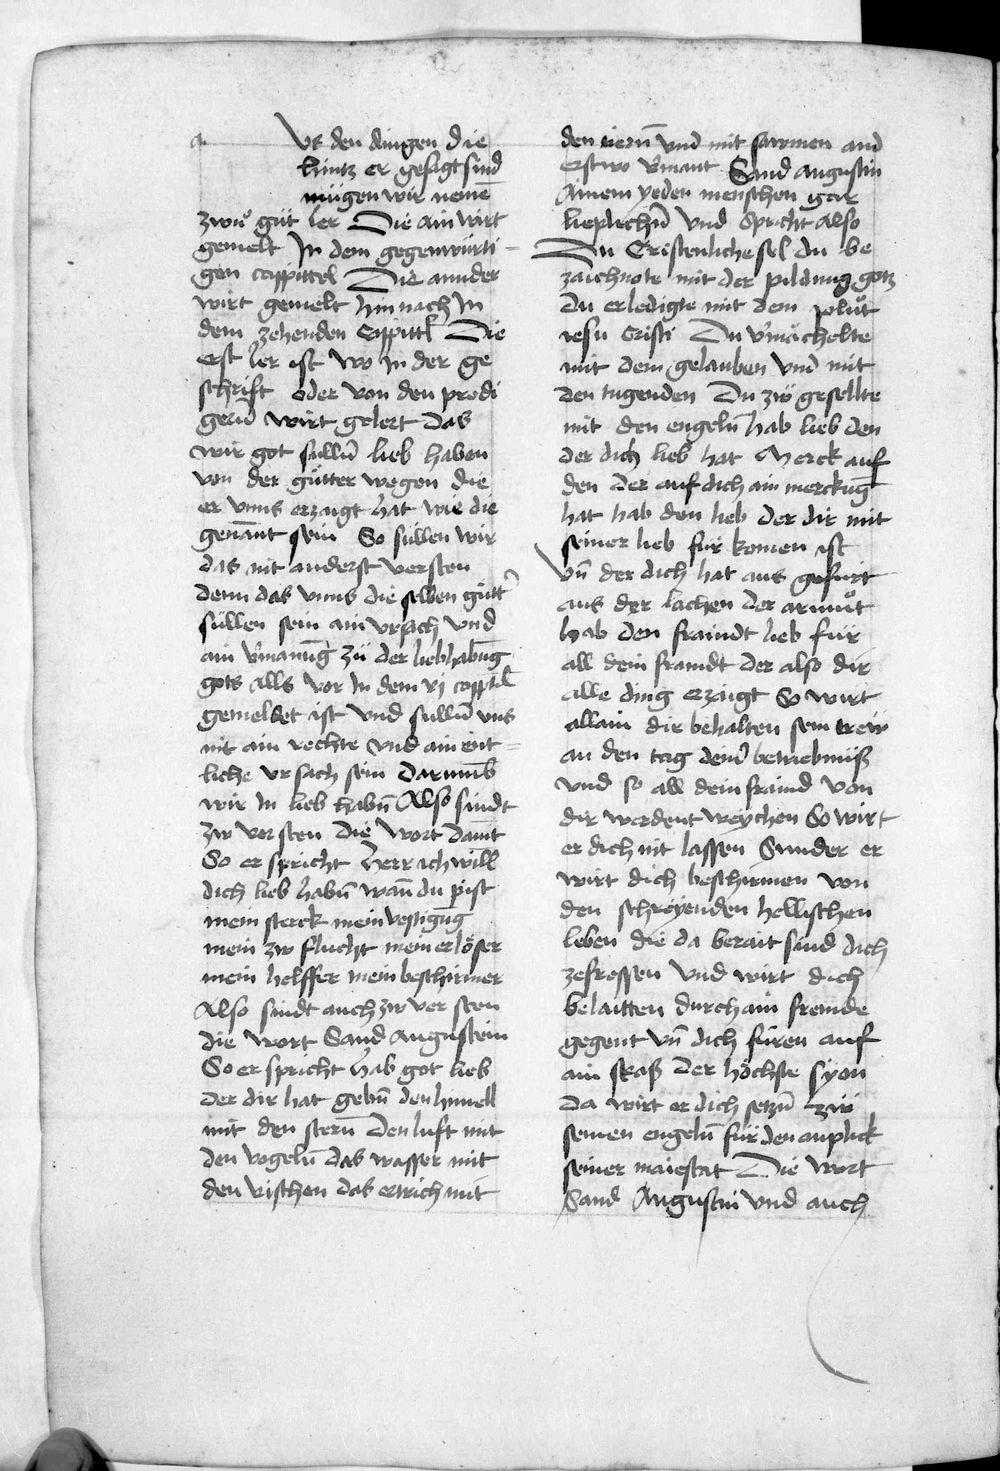 a Vs den dingen die
hintz er gesagt sind
mügen wir nemē
zwů güt ler Die ain wirt
gemelt In dem gegenwürti-
gen cappittel Die annder
wirt gemelt hin nach In
dem zehenden Cappittl Die
erst ler ist wo In der ge
schrift oder von den predi
gerū wirt gelert das
wir got sullū lieb haben
von der gütter wegen die
er vnns erzaigt hat wie die
genānt sein So süllen wir
das nit anderst versten
denn das vnns die selben gütt'
süllen sein ain vrsach vnd
ain v'manūg zü der liebhabūg
gots alls vor In dem vj cappitl
gemeldet ist vnd sullū vns
nit ain rechte vnd ain ent=
liche vrsach sein darumb
wir In lieb habū Also sindt
zw versten die wort dauit
So er spricht herr ich will
dich lieb habū wañ du pist
mein sterck mein vestigūg
mein zw flucht mein erlöser
mein helffer mein beschirmer
Also sindt auch zw ver sten
die wort Sand Augustein
So er spricht hab got lieb
der dir hat gebū den himell
mit den sternū Den luft mit
den vogelū das wasser mit
den vischen das ertrich mit
den tiernū vnd mit sawmen and
erstwo v'mant Sand augustin
Ainem yeden menschen gar
lieplichū vnd Spricht also
Du Cristenliche sel du be
zaichnote mit der pildung gotz
du erledigte mit dem plůt
iesu Cristi Du v'mächelte
mit dem gelauben vnd mit
den tugenden Du zw gesellte
mit den engelū hab lieb den
der dich lieb hat Merck auf
den der auf dich ain merckūg
hat hab den lieb der dir mit
seiner lieb für komen ist
vñ der dich hat aus gefürt
aus der lachen der armůt
hab den fraindt lieb für
all dein fraindt der also dir
alle ding erzaigt So wirt
allain dir behalten sein trew
an den tag deinr betriebnüß
vnd so all dein fraind von
dir werdent weychen So wirt
er dich nit lassen Sunder er
wirt dich beschirmen von
den schreyenden hellischen
leben die da berait sind dich
zefressen vnd wirt dich
belaitten durch ain fremde
gegent vñ dich füren auf
ain straß der höchste syon
da wirt er dich setzū zw
seinen engelū für den anplick
seiner maiestat Die wort
Sand Augustin vnd auch